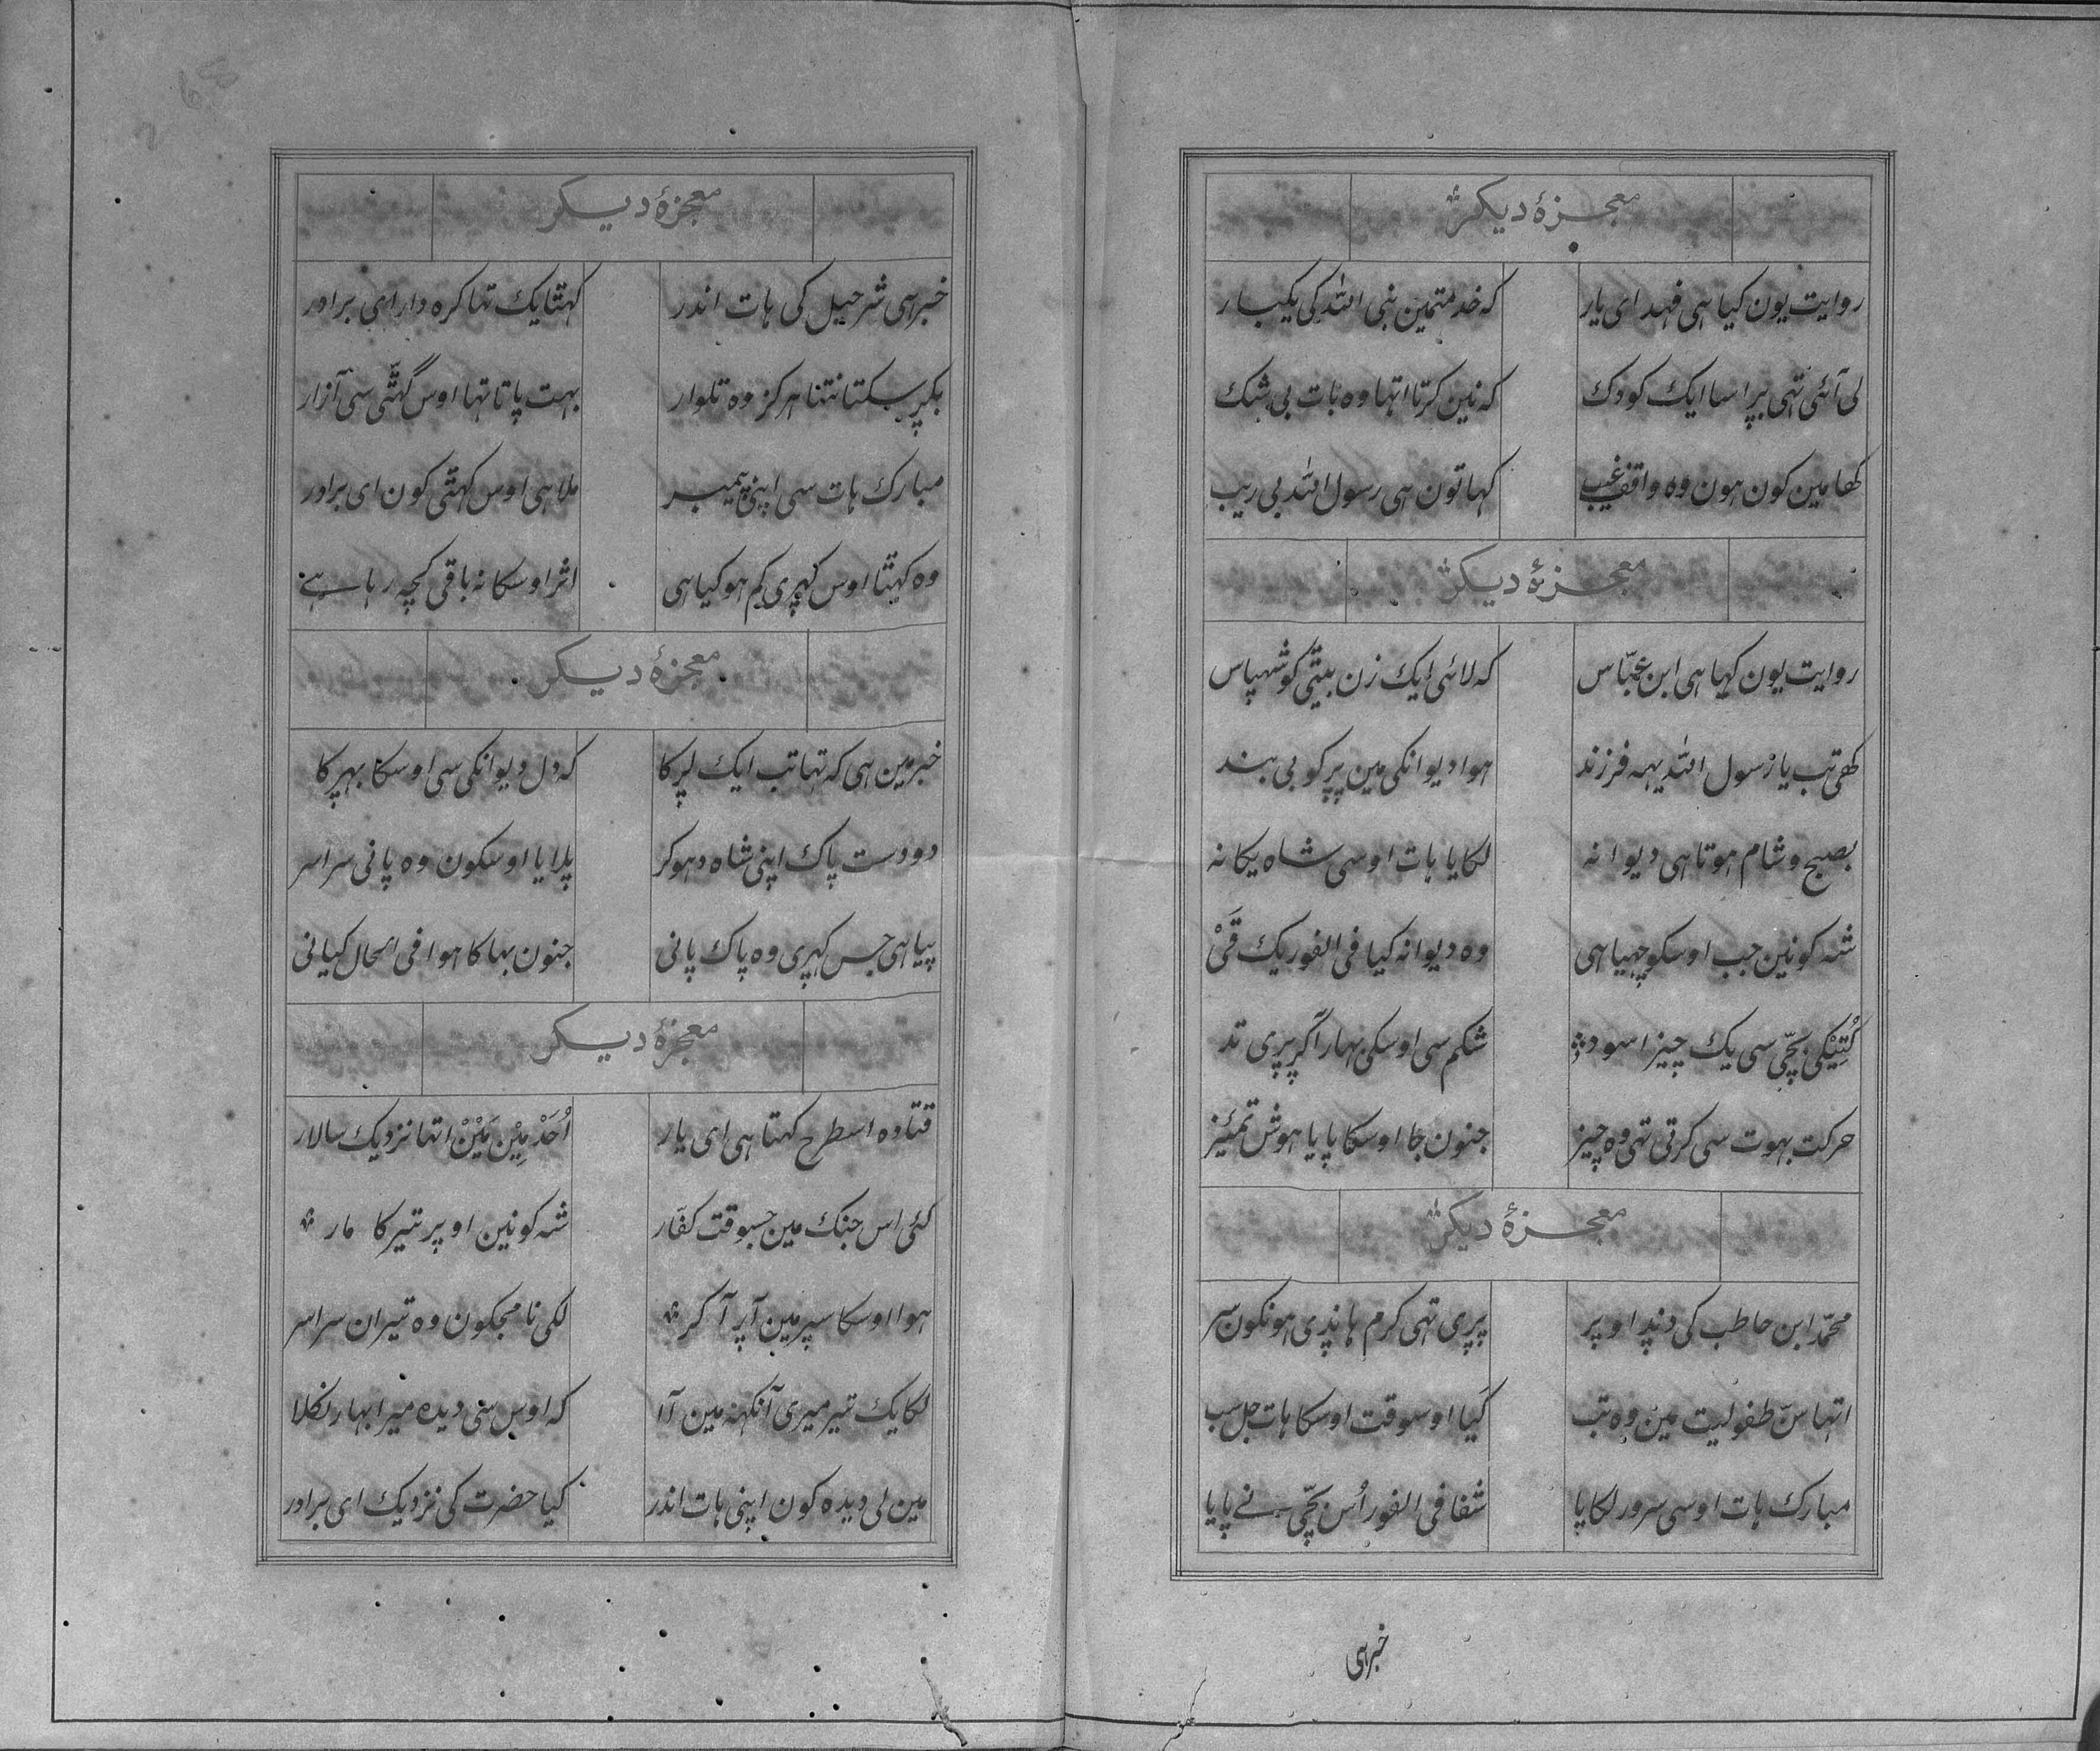 معجزۀ دیکر
روایت یون کیا هی فهد ای یار کہ خدمتمین نبی اللہ کی یکبار
لی آئی تهی بڑا سا ایک کودک کہ نین کرتا اتها وہ بات بی شک
کها مین کون هون وہ واقف غیب کہا تون هی رسول اللہ بی ریب
معجزۀ دیکر
روایت یون کیا هی ابن عبّاس کہ لائی ایک زن بیتی کو شهپاس
کهی تب یا رسول اللہ یهہ فرزند هوا دیوانکی مین پر کو بی بند
بصبح و شام هوتا هی دیوانہ لکایا هات اوسی شاہ یکانہ
شہ کونین جب اوسکو چهیا هی وہ دیوانہ کیا فی الفور یک قَیْ
کُتِیْکی بچّی سی یک چیز اسود شکم سی اوسکی بهار آ کر پڑی تد
حرکت بہوت سی کرتی تهی وہ چیز جنون جا اوسکا پایا هوش تمئیز
معجزۀ دیکر
محمّد ابن حاطب کی دنڈ اوپر پڑی تهی کرم هانڈی هونکون سر
اتها سنّ طفولیت مین وہ تب کَیا اوسوقت اوسکا هات جل سب
مبارک هات اوسی سرور لکایا شفا فی الفور اُس بچّی نے پایا
خبرهی
معجزۀ دیکر
خبرهی شرحیل کی هات اندر کہتا یک تها کرہ دار ای برادر
پکڑ سکتا نتها هرکز وہ تلوار بهت پاتا تها اوس گہتّی سی آزار
مبارک هات سی اپنی پیمبر ملا هی اوس کہتی کون ای برادر
وہ کہتا اوس کہڑی کم هو کیا هی اثر اوسکا نہ باقی کچہ رہا ہے
معجزۀ دیکر
خبر مین هی کہ تها تب ایک لڑکا کہ دل دیوانکی سی اوسکا بهڑکا
دو دست پاک اپنی شاہ دهوکر پلایا اوسکون وہ پانی سراسر
پیا هی جس کہڑی وہ پاک پانی جنون بها کا هوا فی الحال کیانی
معجزۀ دیکر
قتادہ اسطرح کہتا هی ای یار اُحَدْ مِیْن مَیْنْ اتها نزدیک سالار
کئی اس جنک مین جسوقت کفّار شہ کونین اوپر تیر کا مار
هوا اوسکا سپر مین آپ آ کر لکی نا مجکون وہ تیران سراسر
لکا یک تیر میری آنکهہ مین آ کہ اوس سی دیدہ میرا بهار نکلا
مین لی دیدہ کون اپنی هات اندر کیا حضرت کی نزدیک ای برادر